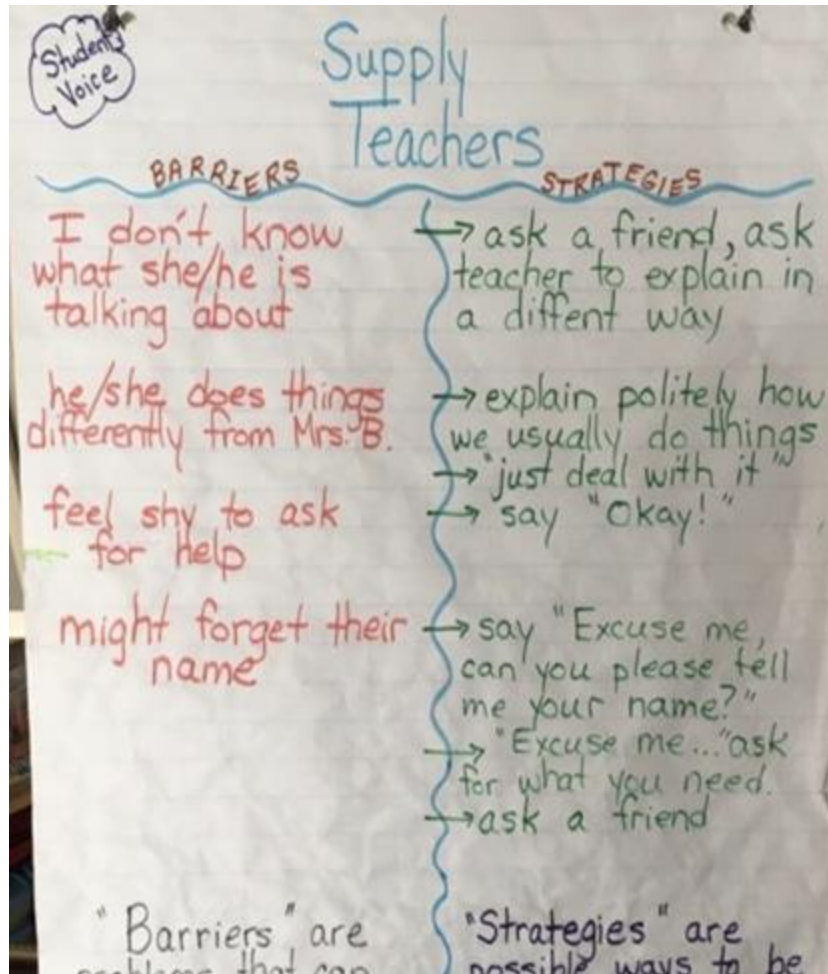 Student
Voice
Supply
Teachers
BARRIERS
I don't know
what she/he is
talking about
he/she does things
differently from Mrs. B.
feel shy to ask
for help
might forget their
name
"Barriers" are
problems that can
STRATEGIES
→ ask a friend, ask
teacher to explain in
a diffent way
→ explain politely how
we usually do things
→ "just deal with it"
→ say "Okay!"
→ say "Excuse me,
can you please tell
me your name?"
→ "Excuse me..." ask
for what you need.
→ ask a friend
"Strategies" are
possible ways to be